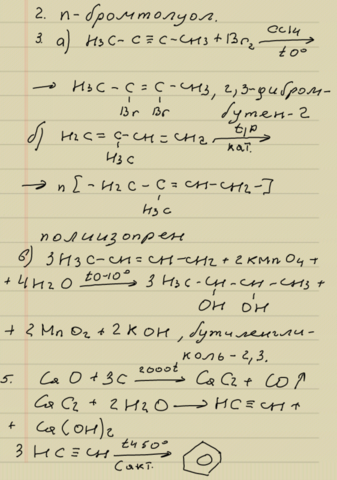 2. п-бромтолуол.
3. а) H3C-C≡C-CH3+Br2 CCl4 t0°
→ H3C-C=C-CH3, 2,3-дибром-
Br Br бутен-2
б) H2C=C-CH=CH2 t,p кат.
H3C
→ n[-H2C-C=CH-CH2-]
H3C
полиизопрен
в) 3H3C-CH=CH-CH3+2KMnO4+
+4H2O t0-10° → 3H3C-CH-CH-CH3+
OH OH
+2MnO2+2KOH, бутиленгли-
коль-2,3.
5. CaO+3C 2000t → CaC2+CO↑
CaC2+2H2O → HC≡CH+
+ Ca(OH)2
3HC≡CH t450° Cакт.